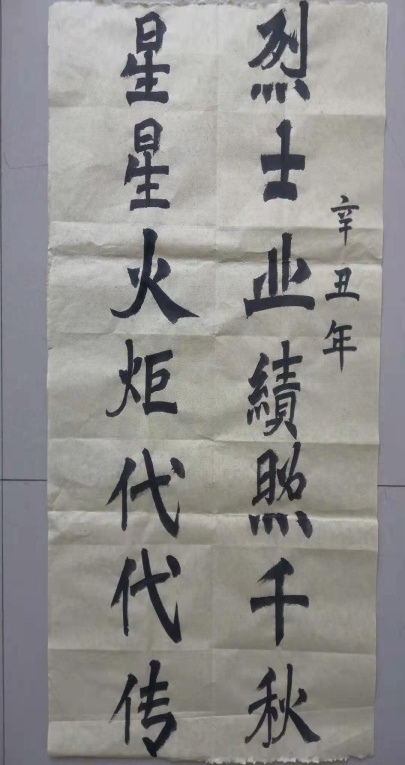 辛丑年
烈士业績照千秋
星星火炬代代传